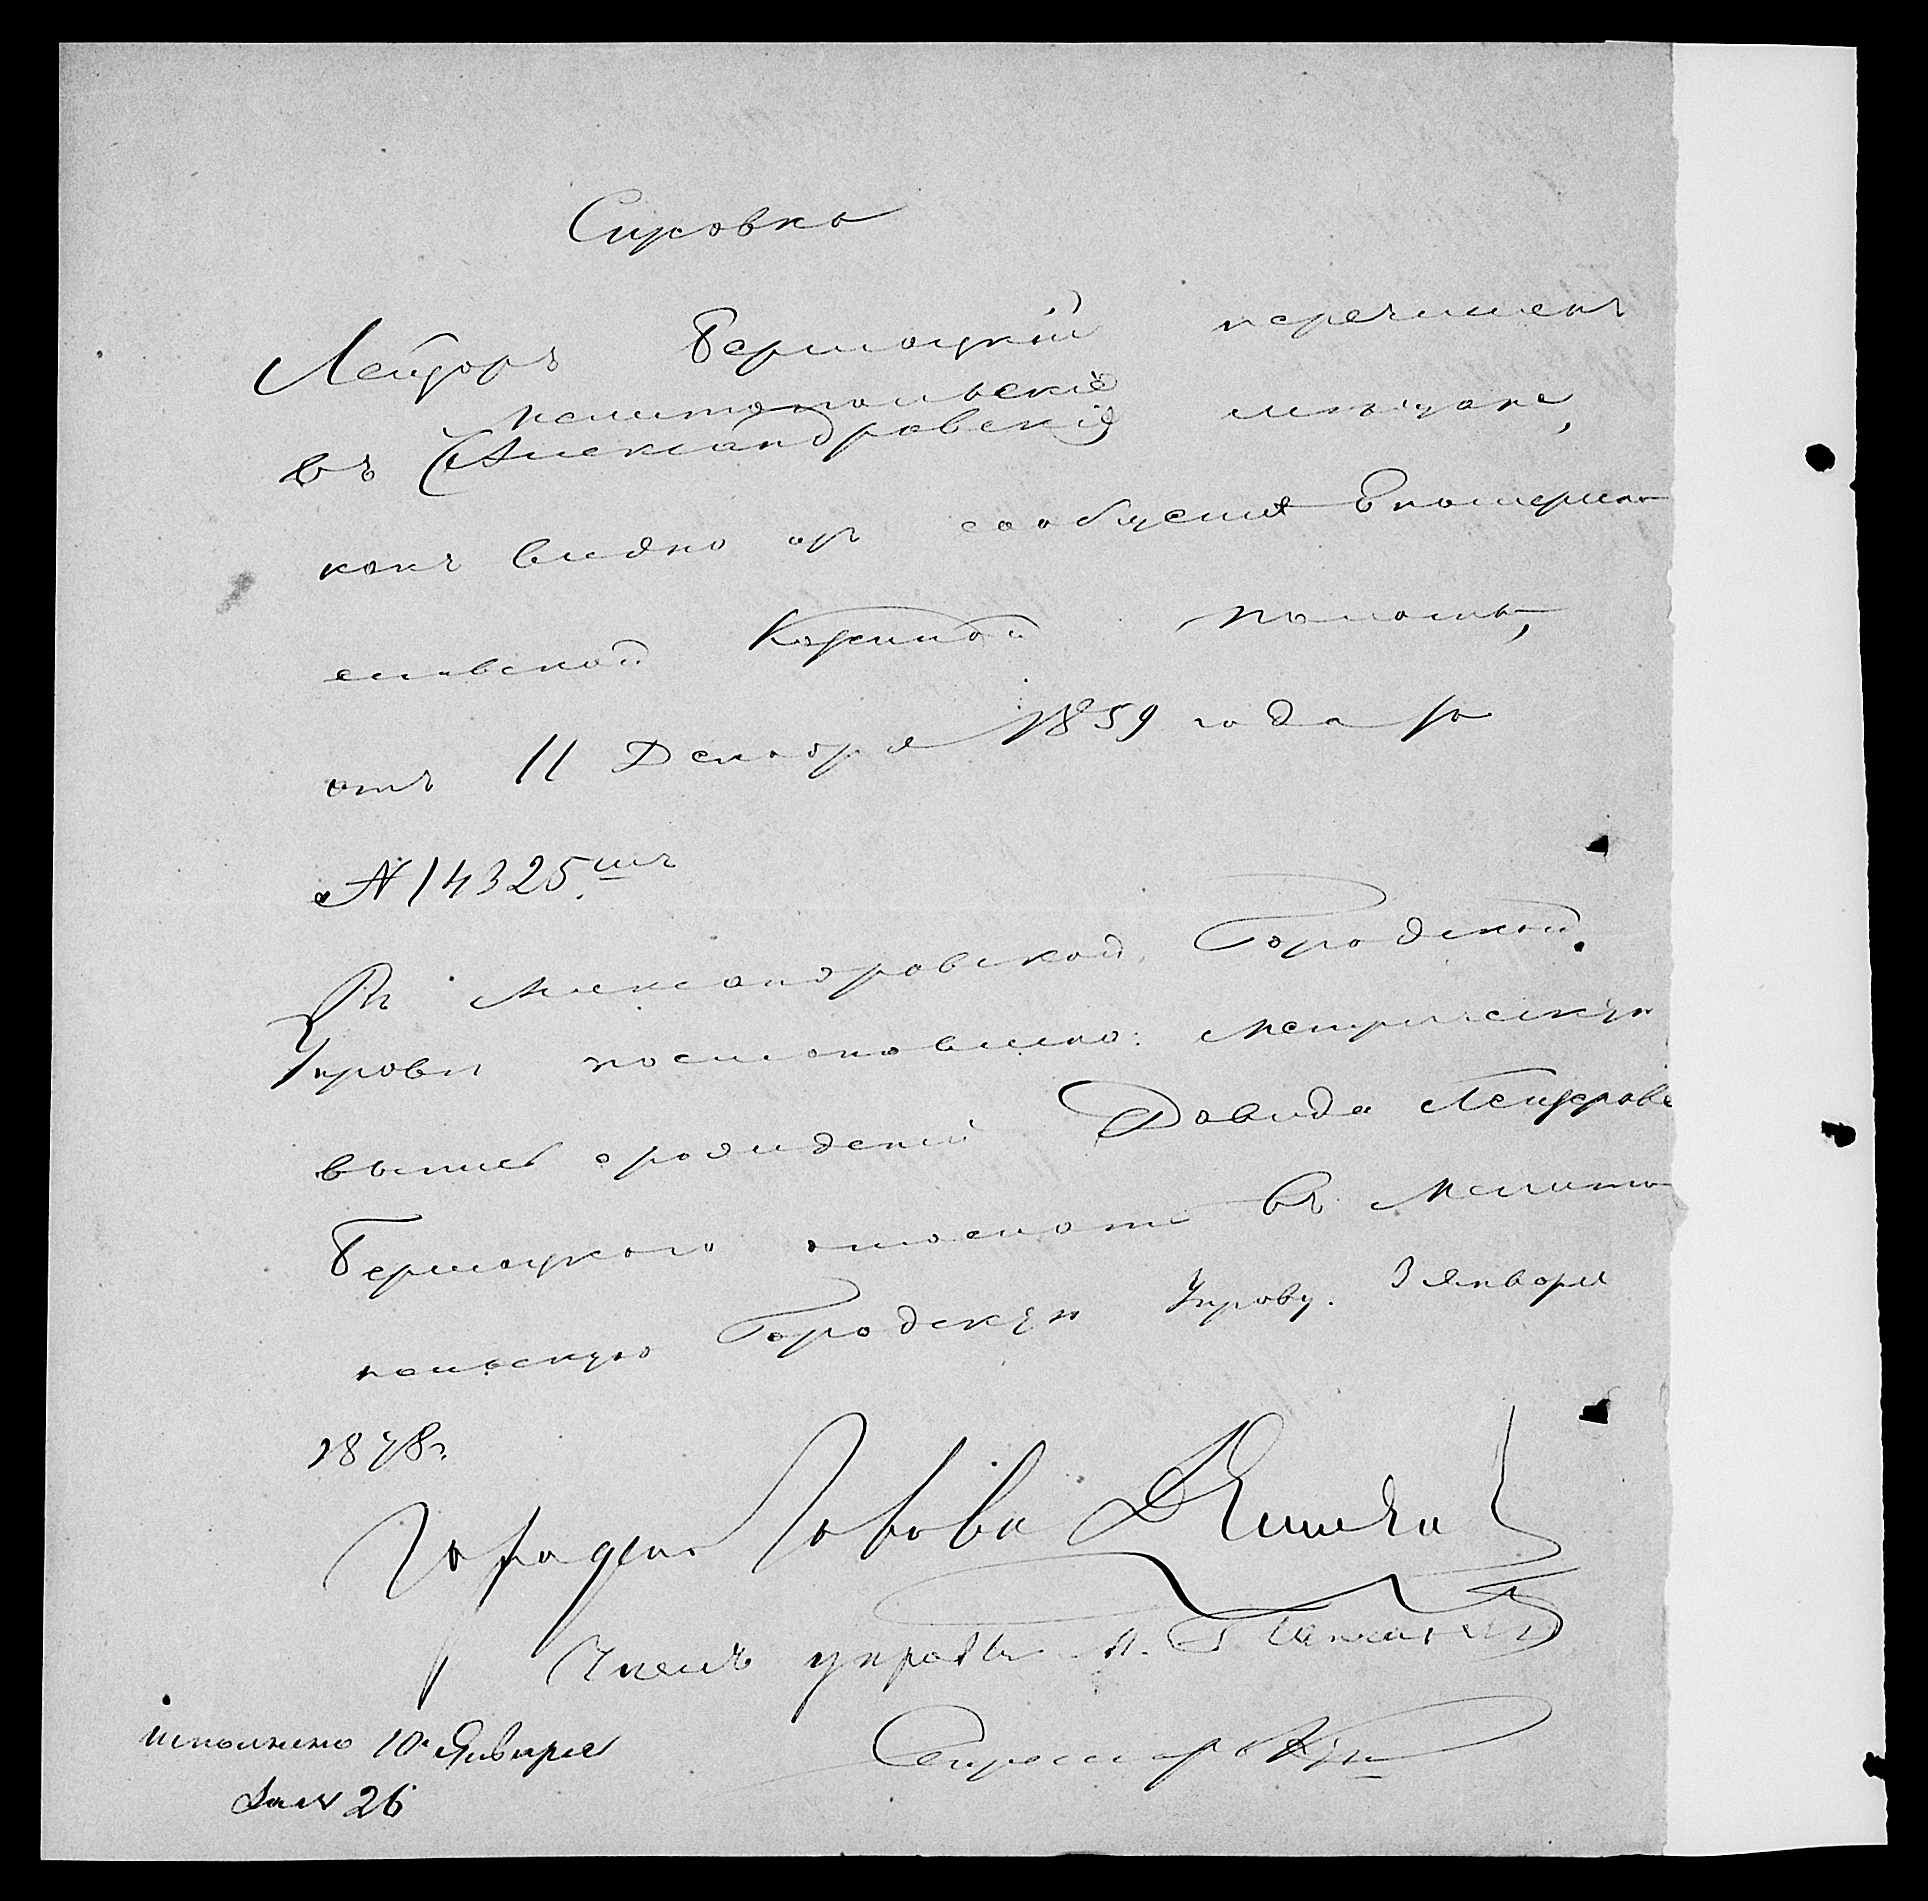 Справка
Лейзоръ Бершацкій перечисленъ
мелитопольскіе
въ (Александровскіе) мѣщане,
какъ видно изъ сообщенія Екатерино
славской Казенной Палаты,
отъ 11 Декабря 1859 года за
№ 14325.мъ
Въ Александровской Городской
Управѣ постановлено: Метрическую
выпись о рожденіи Давида Лейзерова
Бершацкаго отослать въ Мелито
польскую Городскую Управу. 3 Января
1878 г.
Городской Голова
Членъ управы
Секретарь
исполнено 10 Января
за № 26